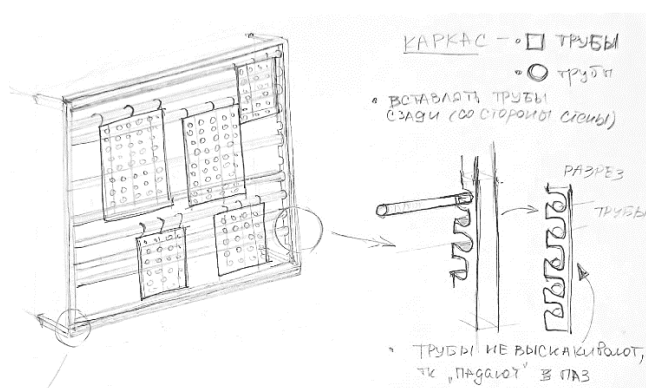 КАРКАС – • □ ТРУБЫ
• ○ трубы
• ВСТАВЛЯТЬ ТРУБЫ
СЗАДИ (СО СТОРОНЫ СТЕНЫ)
РАЗРЕЗ
ТРУБЫ
• ТРУБЫ НЕ ВЫСКАКИВАЮТ,
ТК „ПАДАЮТ" В ПАЗ